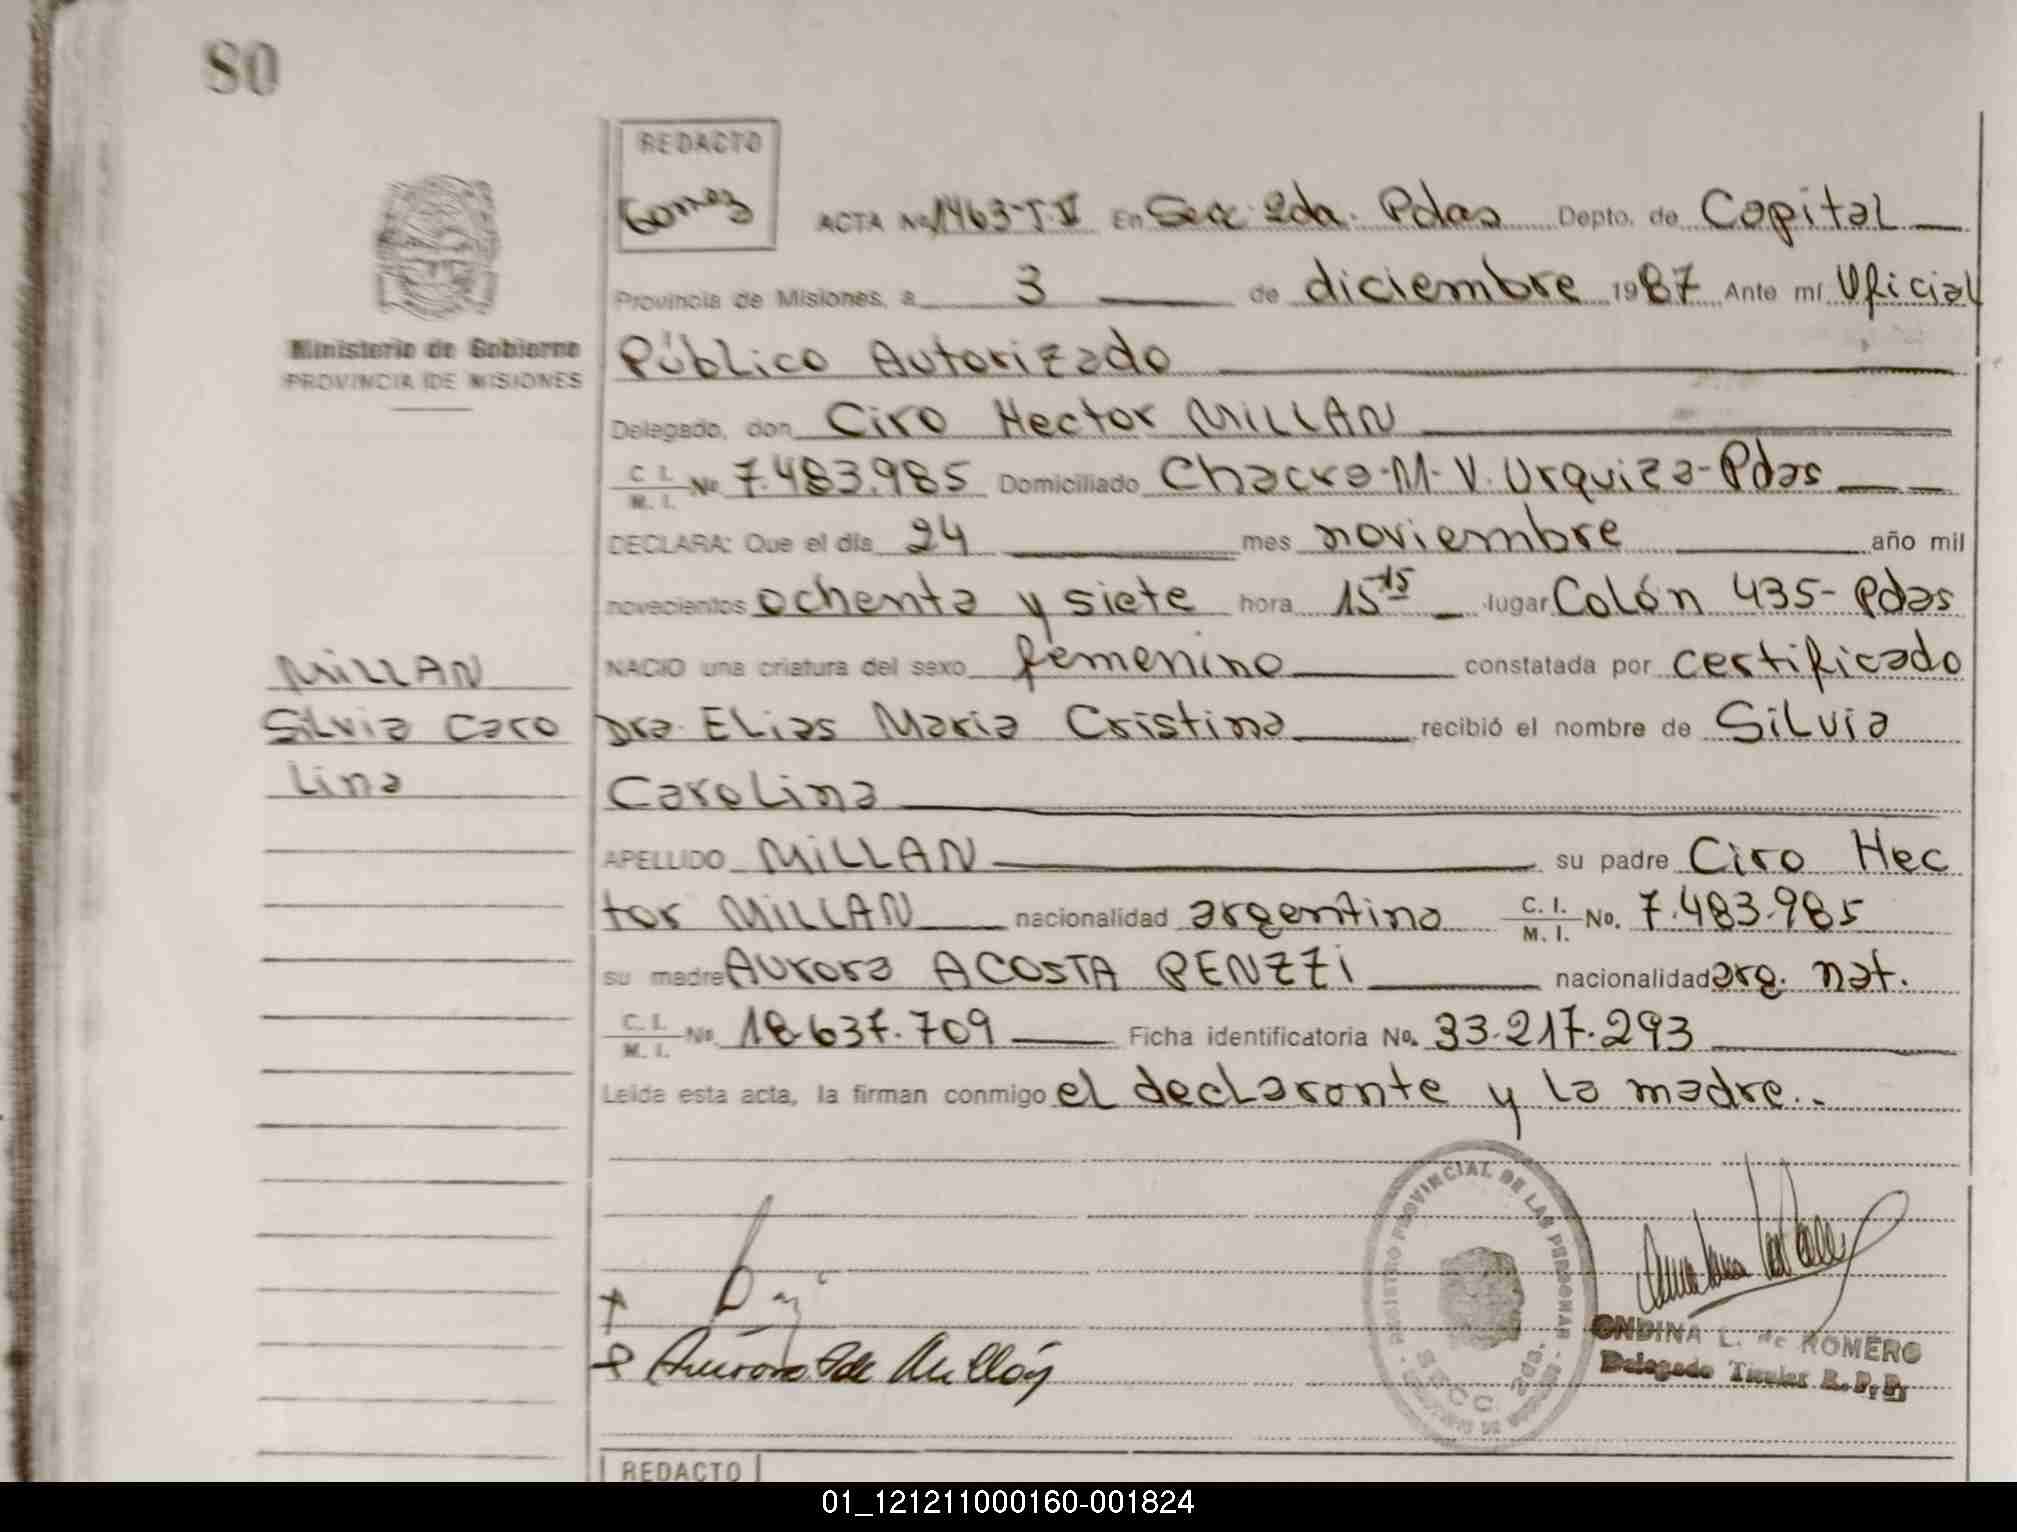 80
REDACTO
Gomez
ACTA No 1463-T.V En Secc. 2da. Pdas Depto. de Capital
Provincia de Misiones, a 3 de diciembre 1987 Ante mí Oficial
Ministerio de Gobierno
PROVINCIA DE MISIONES
Público Autorizado
Delegado, don Ciro Hector MILLAN
C. I. M. I. No 7.483.985 Domiciliado Chacra-M-V. Urquiza-Pdas
DECLARA: Que el día 24 mes noviembre año mil
novecientos ochenta y siete hora 15 15 lugar Colón 435- Pdas
NACIO una criatura del sexo femenino constatada por certificado
Dra. Elias Maria Cristina recibió el nombre de Silvia
Carolina
MILLAN
Silvia Caro
lina
APELLIDO MILLAN su padre Ciro Hec
tor MILLAN nacionalidad argentina C. I. M. I. No. 7.483.985
su madre Aurora ACOSTA PENZZI nacionalidad arg. nat.
C. I. M. I. No 18.637.709 Ficha identificatoria No. 33.217.293
Leída esta acta, la firman conmigo el declarante y la madre..
REGISTRO PROVINCIAL DE LAS PERSONAS
SECC. 2da.
Aurora de Millán
ONDINA L. de ROMERO
Delegado Titular R. P. P.
REDACTO
01_121211000160-001824